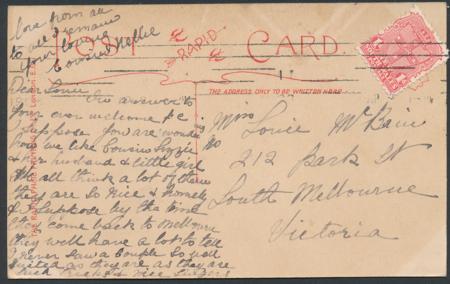 love from all
to all I remain
your loving
Cousin Nellie
POST CARD.
RAPID
THE ADDRESS ONLY TO BE WRITTEN HERE
Dear Louie
In answer to
your ever welcome P.C
I suppose you are wonder
how we like Cousin Lizzie
& her husband & little girl
We all think a lot of them
they are so nice & homely
& I suppose by the time
they come back to Melbourne
they will have a lot to tell
I never saw a couple so well
suited as they are as they are
both
nice
Miss Louie McBain
212 Park St
South Melbourne
Victoria